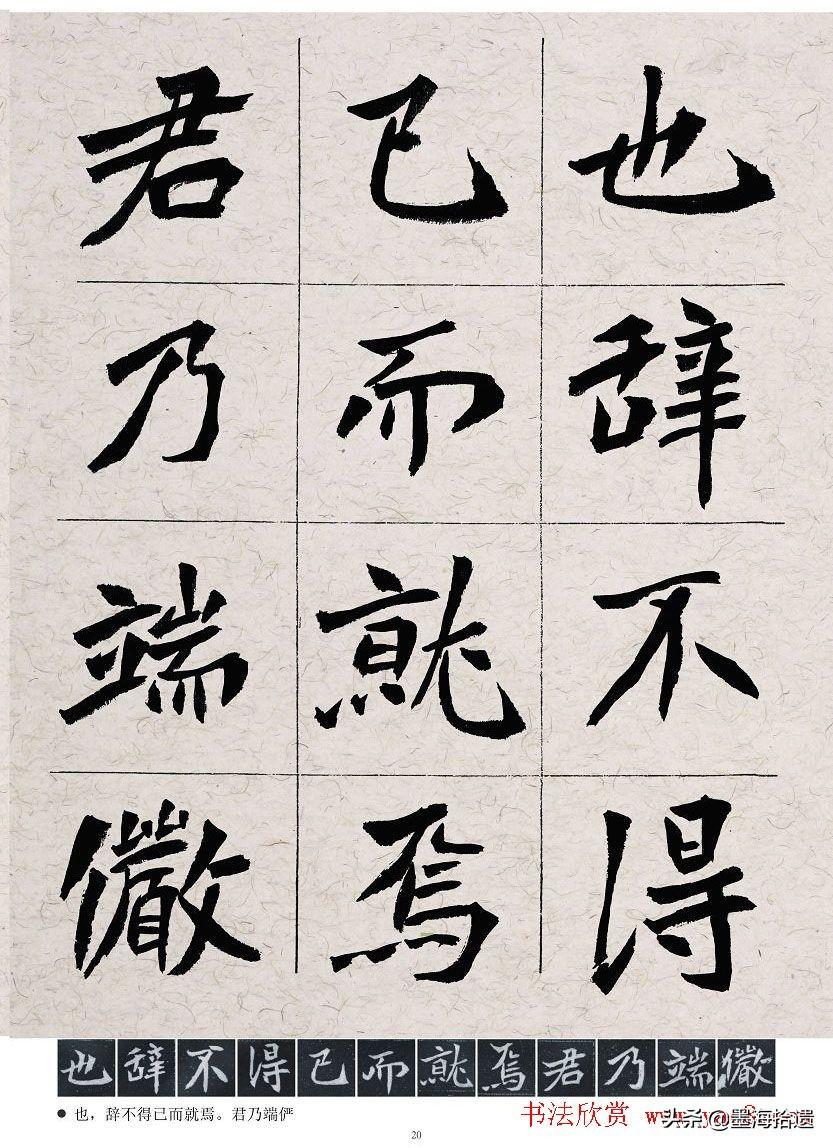 也辞不得
已而就焉
君乃端儼
也辞不得已而就焉君乃端儼
●也，辞不得已而就焉。君乃端俨
书法欣赏 www.y
头条@墨海拾遗
20